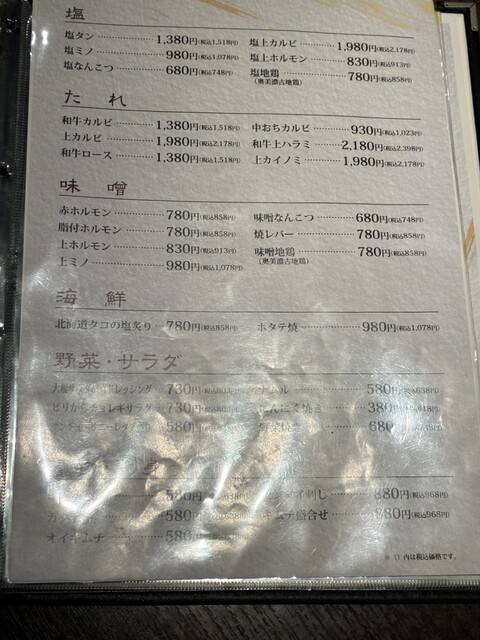 塩
塩タン 1,380円(税込1,518円)
塩ミノ 980円(税込1,078円)
塩なんこつ 680円(税込748円)
塩上カルビ 1,980円(税込2,178円)
塩上ホルモン 830円(税込913円)
塩地鶏 780円(税込858円)
(奥美濃古地鶏)
たれ
和牛カルビ 1,380円(税込1,518円)
上カルビ 1,980円(税込2,178円)
和牛ロース 1,380円(税込1,518円)
中おちカルビ 930円(税込1,023円)
和牛上ハラミ 2,180円(税込2,398円)
上カイノミ 1,980円(税込2,178円)
味噌
赤ホルモン 780円(税込858円)
脂付ホルモン 780円(税込858円)
上ホルモン 830円(税込913円)
上ミノ 980円(税込1,078円)
味噌なんこつ 680円(税込748円)
焼レバー 780円(税込858円)
味噌地鶏 780円(税込858円)
(奥美濃古地鶏)
海鮮
北海道タコの塩炙り 780円(税込858円)
ホタテ焼 980円(税込1,078円)
野菜・サラダ
730円(税込803円)
ピリからチョレギサラダ 730円(税込803円)
580円
ナムル 580円(税込638円)
380円
680円
580円
580円
オイキムチ 580円
880円(税込968円)
キムチ盛合せ 880円(税込968円)
※()内は税込価格です。